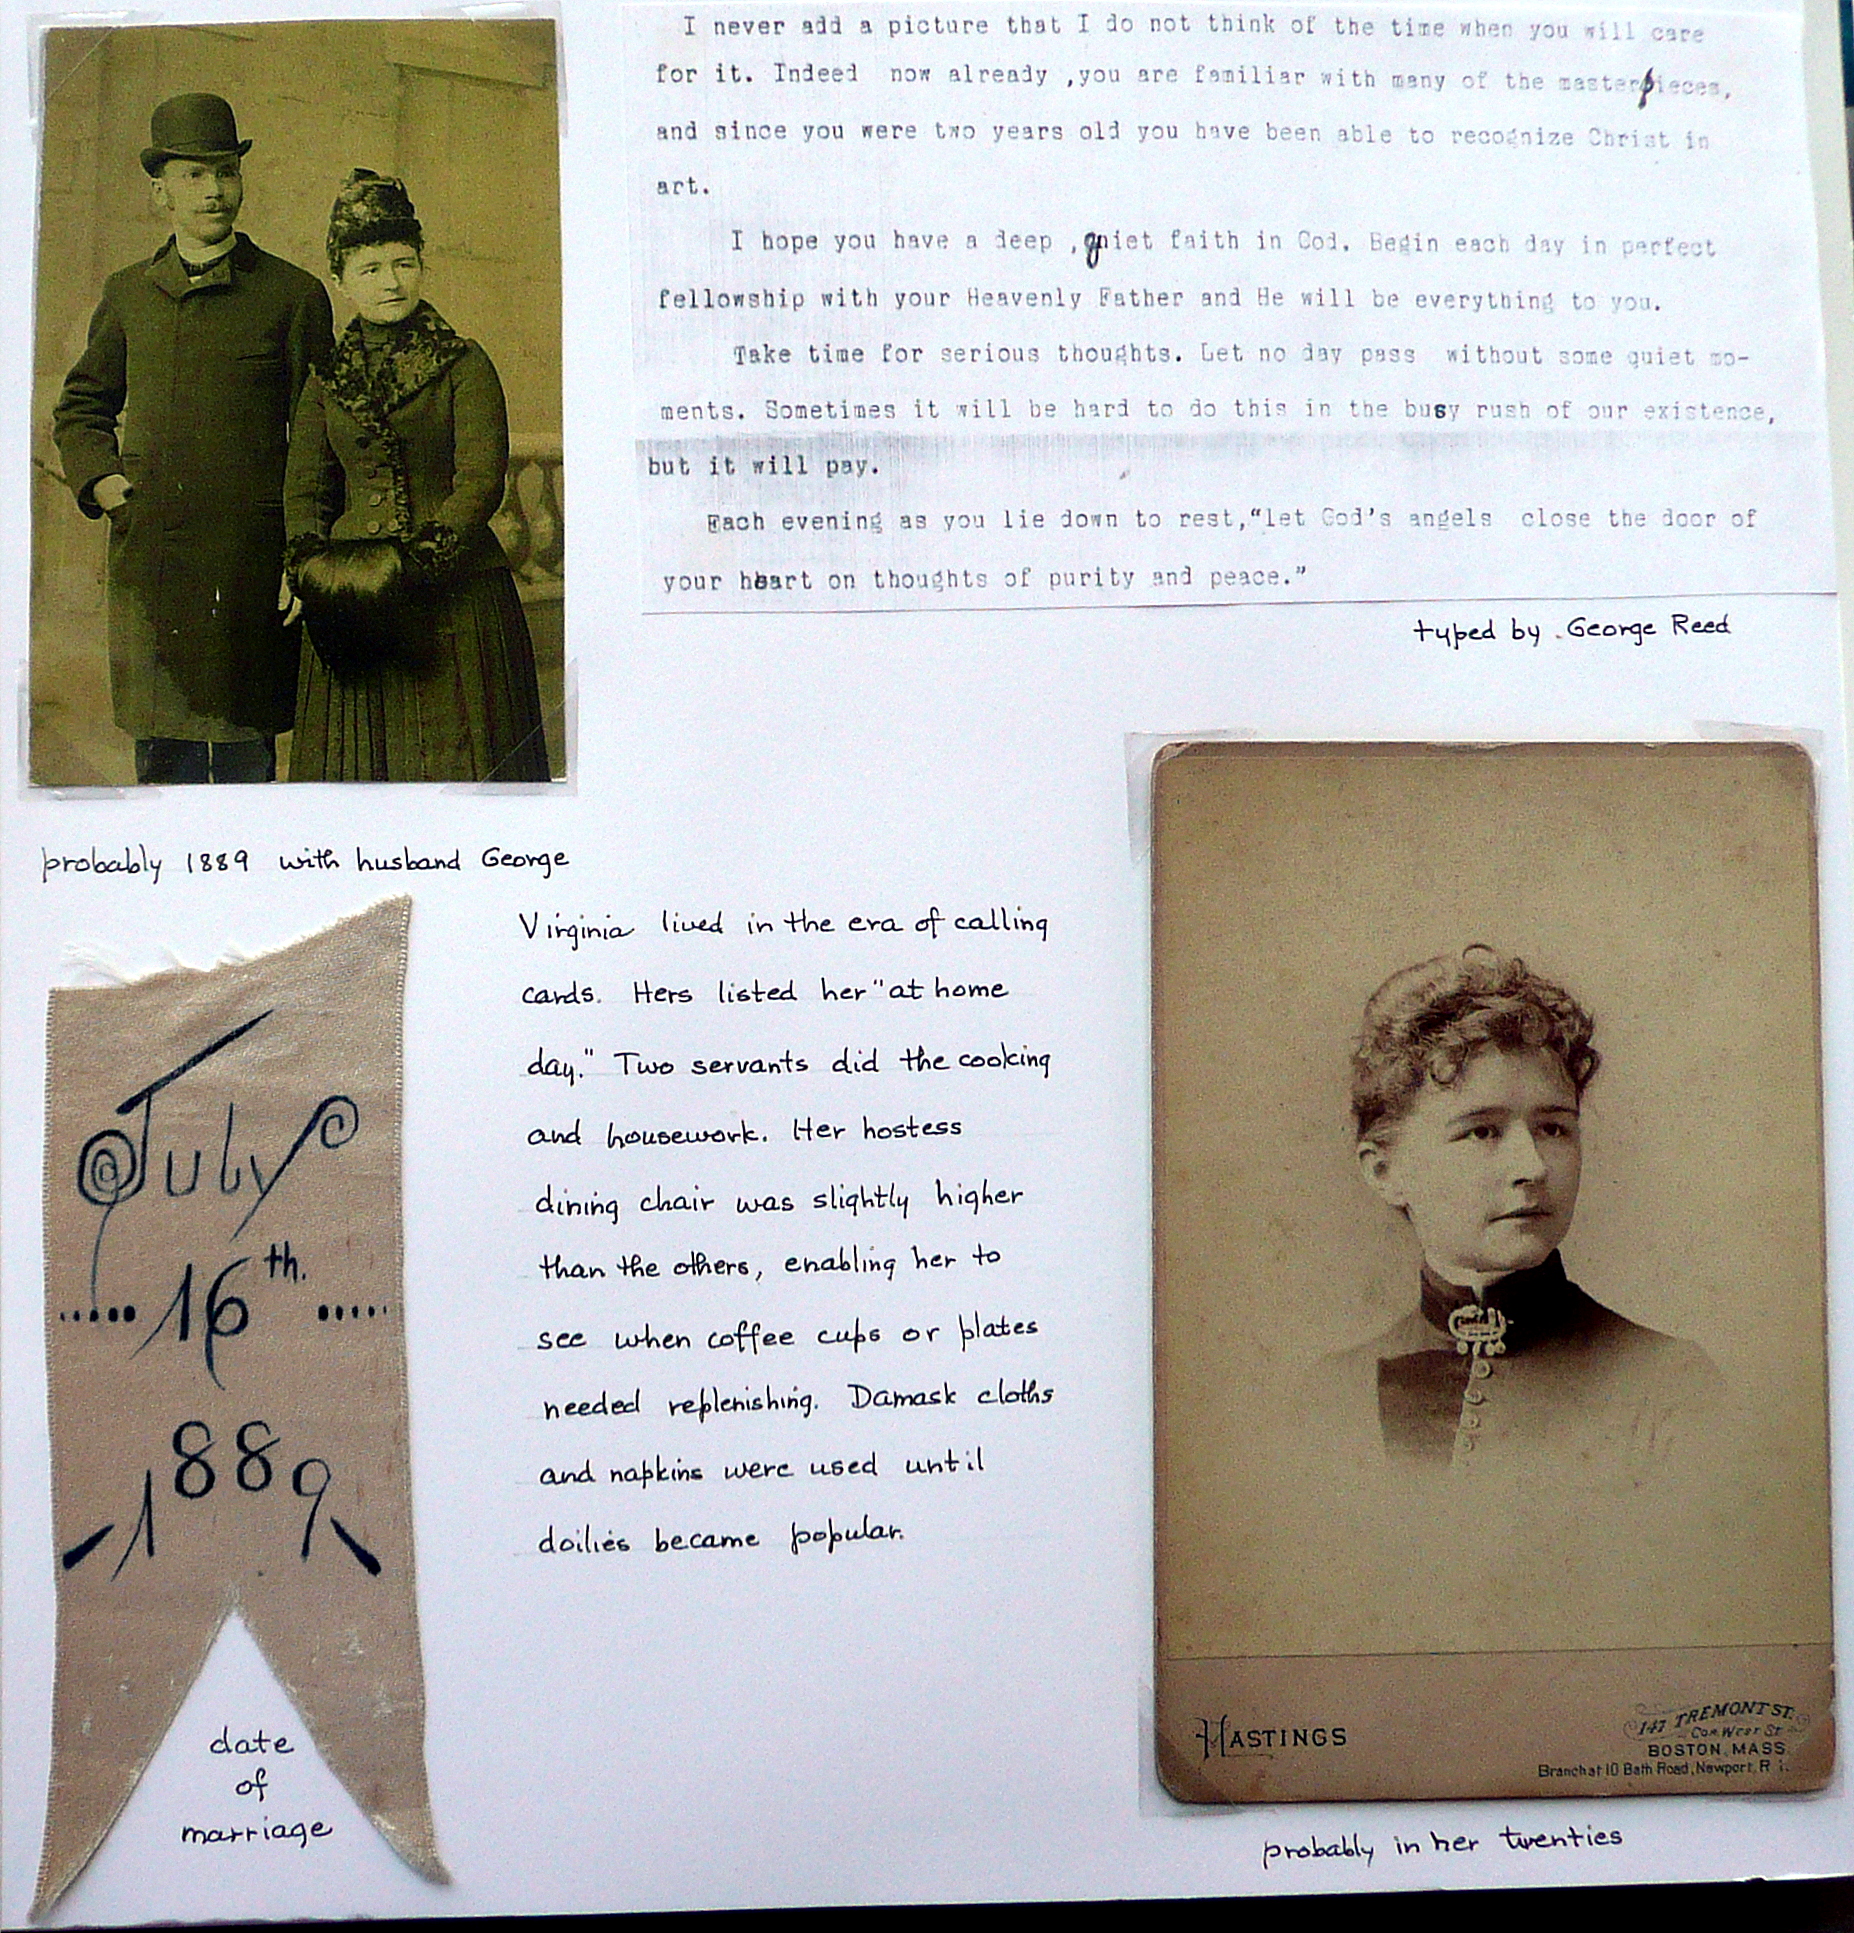 I never add a picture that I do not think of the time when you will care
for it. Indeed now already ,you are familiar with many of the masterpieces,
and since you were two years old you have been able to recognize Christ in
art.
I hope you have a deep ,quiet faith in God. Begin each day in perfect
fellowship with your Heavenly Father and He will be everything to you.
Take time for serious thoughts. Let no day pass without some quiet mo-
ments. Sometimes it will be hard to do this in the busy rush of our existence,
but it will pay.
Each evening as you lie down to rest,"let God's angels close the door of
your heart on thoughts of purity and peace."
typed by George Reed
probably 1889 with husband George
July
16th.
1889
date
of
marriage
Virginia lived in the era of calling
cards. Hers listed her "at home
day." Two servants did the cooking
and housework. Her hostess
dining chair was slightly higher
than the others, enabling her to
see when coffee cups or plates
needed replenishing. Damask cloths
and napkins were used until
doilies became popular.
HASTINGS
147 TREMONT ST.
Cor. West St.
BOSTON, MASS.
Branch at 10 Bath Road, Newport, R.I.
probably in her twenties